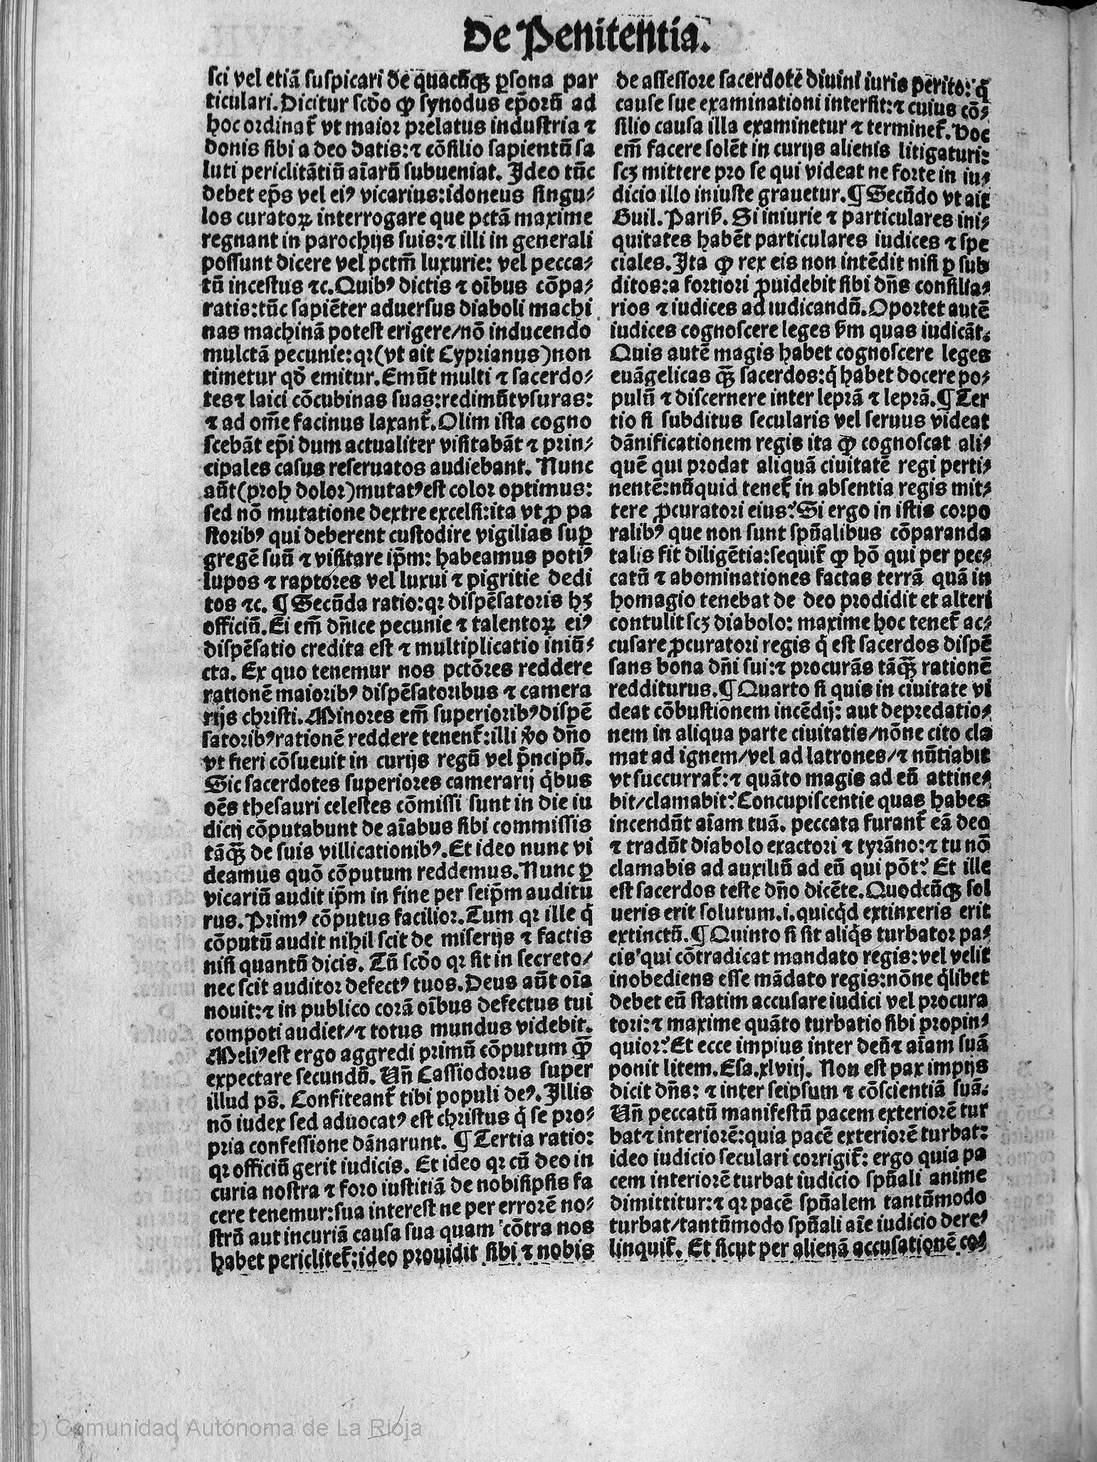 De Penitentia.
sci vel etiã suspicari de quacũqꝫ ꝑsona par
ticulari. Dicitur scd̃o ꝙ synodus ep̃orũ ad
hoc ordinat̃ vt maior prelatus industria ⁊
donis sibi a deo datis:⁊ cõsilio sapientũ sa
luti periclitãtiũ aĩarũ subueniat. Ideo tũc
debet ep̃s vel eiꝰ vicarius:idoneus singu⸗
los curatoꝝ interrogare que pctã maxime
regnant in parochijs suis:⁊ illi in generali
possunt dicere vel pctm̃ luxurie: vel pecca⸗
tũ incestus ⁊c. Quibꝰ dictis ⁊ oĩbus cõpa⸗
ratis:tũc sapiẽter aduersus diaboli machi
nas machinã potest erigere/nõ inducendo
mulctã pecunie:qꝛ(vt ait Cyprianus)non
timetur qd̃ emitur. Emũt multi ⁊ sacerdo⸗
tes ⁊ laici cõcubinas suas:redimũt vsuras:
⁊ ad om̃e facinus laxant̃. Olim ista cogno
scebãt ep̃i dum actualiter visitabãt ⁊ prin⸗
cipales casus reseruatos audiebant. Nunc
aũt(proh dolor)mutatꝰ est color optimus:
sed nõ mutatione dextre excelsi:ita vt ꝓ pa
storibꝰ qui deberent custodire vigilias suꝑ
gregẽ suũ ⁊ visitare ip̃m: habeamus potiꝰ
lupos ⁊ raptores vel luxui ⁊ pigritie dedi
tos ⁊c. ¶ Secũda ratio:qꝛ dispẽsatoris hꝫ
officiũ. Ei em̃ dñice pecunie ⁊ talentoꝝ eiꝰ
dispẽsatio credita est ⁊ multiplicatio iniũ⸗
cta. Ex quo tenemur nos pctõres reddere
rationẽ maioribꝰ dispẽsatoribus ⁊ camera
rijs christi. Minores em̃ superioribꝰ dispẽ
satoribꝰ rationẽ reddere tenent̃:illi ṽo dño
vt fieri cõsueuit in curijs regũ vel p̃ncipũ.
Sic sacerdotes superiores camerarij q̃bus
oẽs thesauri celestes cõmissi sunt in die iu
dicij cõputabunt de aĩabus sibi commissis
tãqꝫ de suis villicationibꝰ. Et ideo nunc vi
deamus quõ cõputum reddemus. Nunc ꝑ
vicariũ audit ip̃m in fine per seip̃m auditu
rus. Primꝰ cõputus facilior. Tum qꝛ ille q̃
cõputũ audit nihil scit de miserijs ⁊ factis
nisi quantũ dicis. Tũ scd̃o qꝛ fit in secreto/
nec scit auditor defectꝰ tuos. Deus aũt oĩa
nouit:⁊ in publico corã oĩbus defectus tui
compoti audiet/⁊ totus mundus videbit.
Meliꝰ est ergo aggredi primũ cõputum ꝙ̃
expectare secundũ. Uñ Cassiodorus super
illud ps̃. Confiteant̃ tibi populi deꝰ. Illis
nõ iudex sed aduocatꝰ est christus q̃ se pro⸗
pria confessione dãnarunt. ¶ Tertia ratio:
qꝛ officiũ gerit iudicis. Et ideo qꝛ cũ deo in
curia nostra ⁊ foro iustitiã de nobisipsis fa
cere tenemur:sua interest ne per errorẽ no⸗
strũ aut incuriã causa sua quam cõtra nos
habet periclitet̃:ideo prouidit sibi ⁊ nobis
de assessore sacerdotẽ diuini iuris perito:q̃
cause sue examinationi intersit:⁊ cuius cõ⸗
silio causa illa examinetur ⁊ terminet̃. Hoc
em̃ facere solẽt in curijs alienis litigaturi:
scꝫ mittere pro se qui videat ne forte in iu⸗
dicio illo iniuste grauetur. ¶ Secũdo vt ait
Guil. Paris̃. Si iniurie ⁊ particulares ini⸗
quitates habẽt particulares iudices ⁊ spe
ciales. Ita ꝙ rex eis non intẽdit nisi ꝑ sub
ditos:a fortiori ꝓuidebit sibi dñs consilia⸗
rios ⁊ iudices ad iudicandũ. Oportet autẽ
iudices cognoscere leges s̃m quas iudicãt.
Quis autẽ magis habet cognoscere leges
euãgelicas ꝙ̃ sacerdos:q̃ habet docere po⸗
pulũ ⁊ discernere inter leprã ⁊ leprã. ¶ Ter
tio si subditus secularis vel seruus videat
dãnificationem regis ita ꝙ cognoscat ali⸗
quẽ qui prodat aliquã ciuitatẽ regi perti⸗
nentẽ:nũquid tenet̃ in absentia regis mit⸗
tere ꝓcuratori eius? Si ergo in istis corpo
ralibꝰ que non sunt spũalibus cõparanda
talis fit diligẽtia:sequit̃ ꝙ hõ qui per pec⸗
catũ ⁊ abominationes factas terrã quã in
homagio tenebat de deo prodidit et alteri
contulit scꝫ diabolo: maxime hoc tenet̃ ac⸗
cusare ꝓcuratori regis q̃ est sacerdos dispẽ
sans bona dñi sui:⁊ procurãs tãqꝫ rationẽ
redditurus. ¶ Quarto si quis in ciuitate vi
deat cõbustionem incẽdij: aut depredatio⸗
nem in aliqua parte ciuitatis/nõne cito cla
mat ad ignem/vel ad latrones/⁊ nũtiabit
vt succurrat̃:⁊ quãto magis ad eũ attine⸗
bit/clamabit? Concupiscentie quas habes
incendũt aĩam tuã. peccata furant̃ eã deo
⁊ tradũt diabolo exactori ⁊ tyrãno:⁊ tu nõ
clamabis ad auxiliũ ad eũ qui põt? Et ille
est sacerdos teste dño dicẽte. Quodcũqꝫ sol
ueris erit solutum.i.quicq̃d extinxeris erit
extinctũ. ¶ Quinto si sit aliq̃s turbator pa⸗
cis qui cõtradicat mandato regis:vel velit
inobediens esse mãdato regis:nõne q̃libet
debet eũ statim accusare iudici vel procura
tori:⁊ maxime quãto turbatio sibi propin⸗
quior? Et ecce impius inter deũ ⁊ aĩam suã
ponit litem. Esa.xlviij. Non est pax impijs
dicit dñs: ⁊ inter seipsum ⁊ cõscientiã suã.
Uñ peccatũ manifestũ pacem exteriorẽ tur
bat ⁊ interiorẽ:quia pacẽ exteriorẽ turbat:
ideo iudicio seculari corrigit̃: ergo quia pa
cem interiorẽ turbat iudicio spũali anime
dimittitur:⁊ qꝛ pacẽ spũalem tantũmodo
turbat/tantũmodo spũali aĩe iudicio dere⸗
linquit̃. Et sicut per alienã accusationẽ co⸗
(c) Comunidad Autónoma de La Rioja